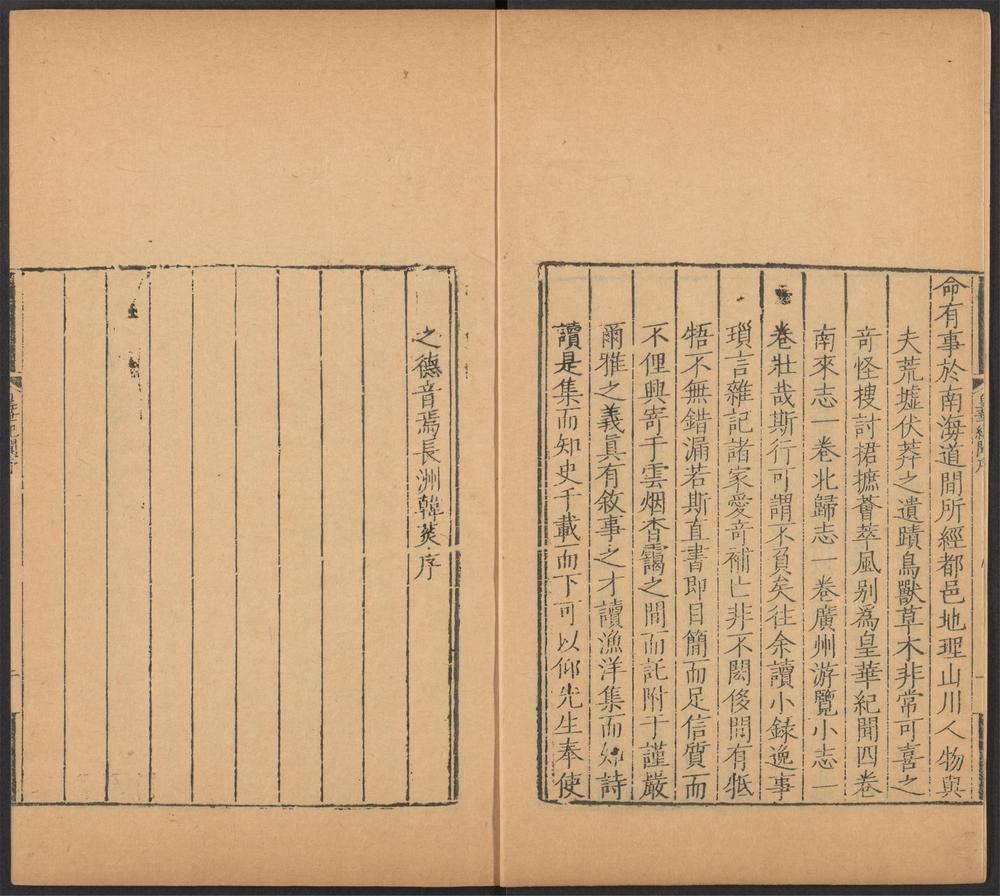 命有事於南海道間所經都邑地理山川人物與
夫荒墟伏莽之遺蹟鳥獸草木非常可喜之
奇怪搜討捃摭薈萃風別為皇華紀聞四卷
南來志一卷北歸志一卷廣州游覽小志一
卷壯哉斯行可謂不負矣往余讀小録逸事
瑣言雜記諸家愛奇補亡非不閎侈間有牴
牾不無錯漏若斯直書即目簡而足信質而
不俚興寄于雲烟杳靄之間而託附于謹嚴
爾雅之義真有敘事之才讀漁洋集而知詩
讀是集而知史千載而下可以仰先生奉使
之德音焉長洲韓菼序
皇華紀聞序